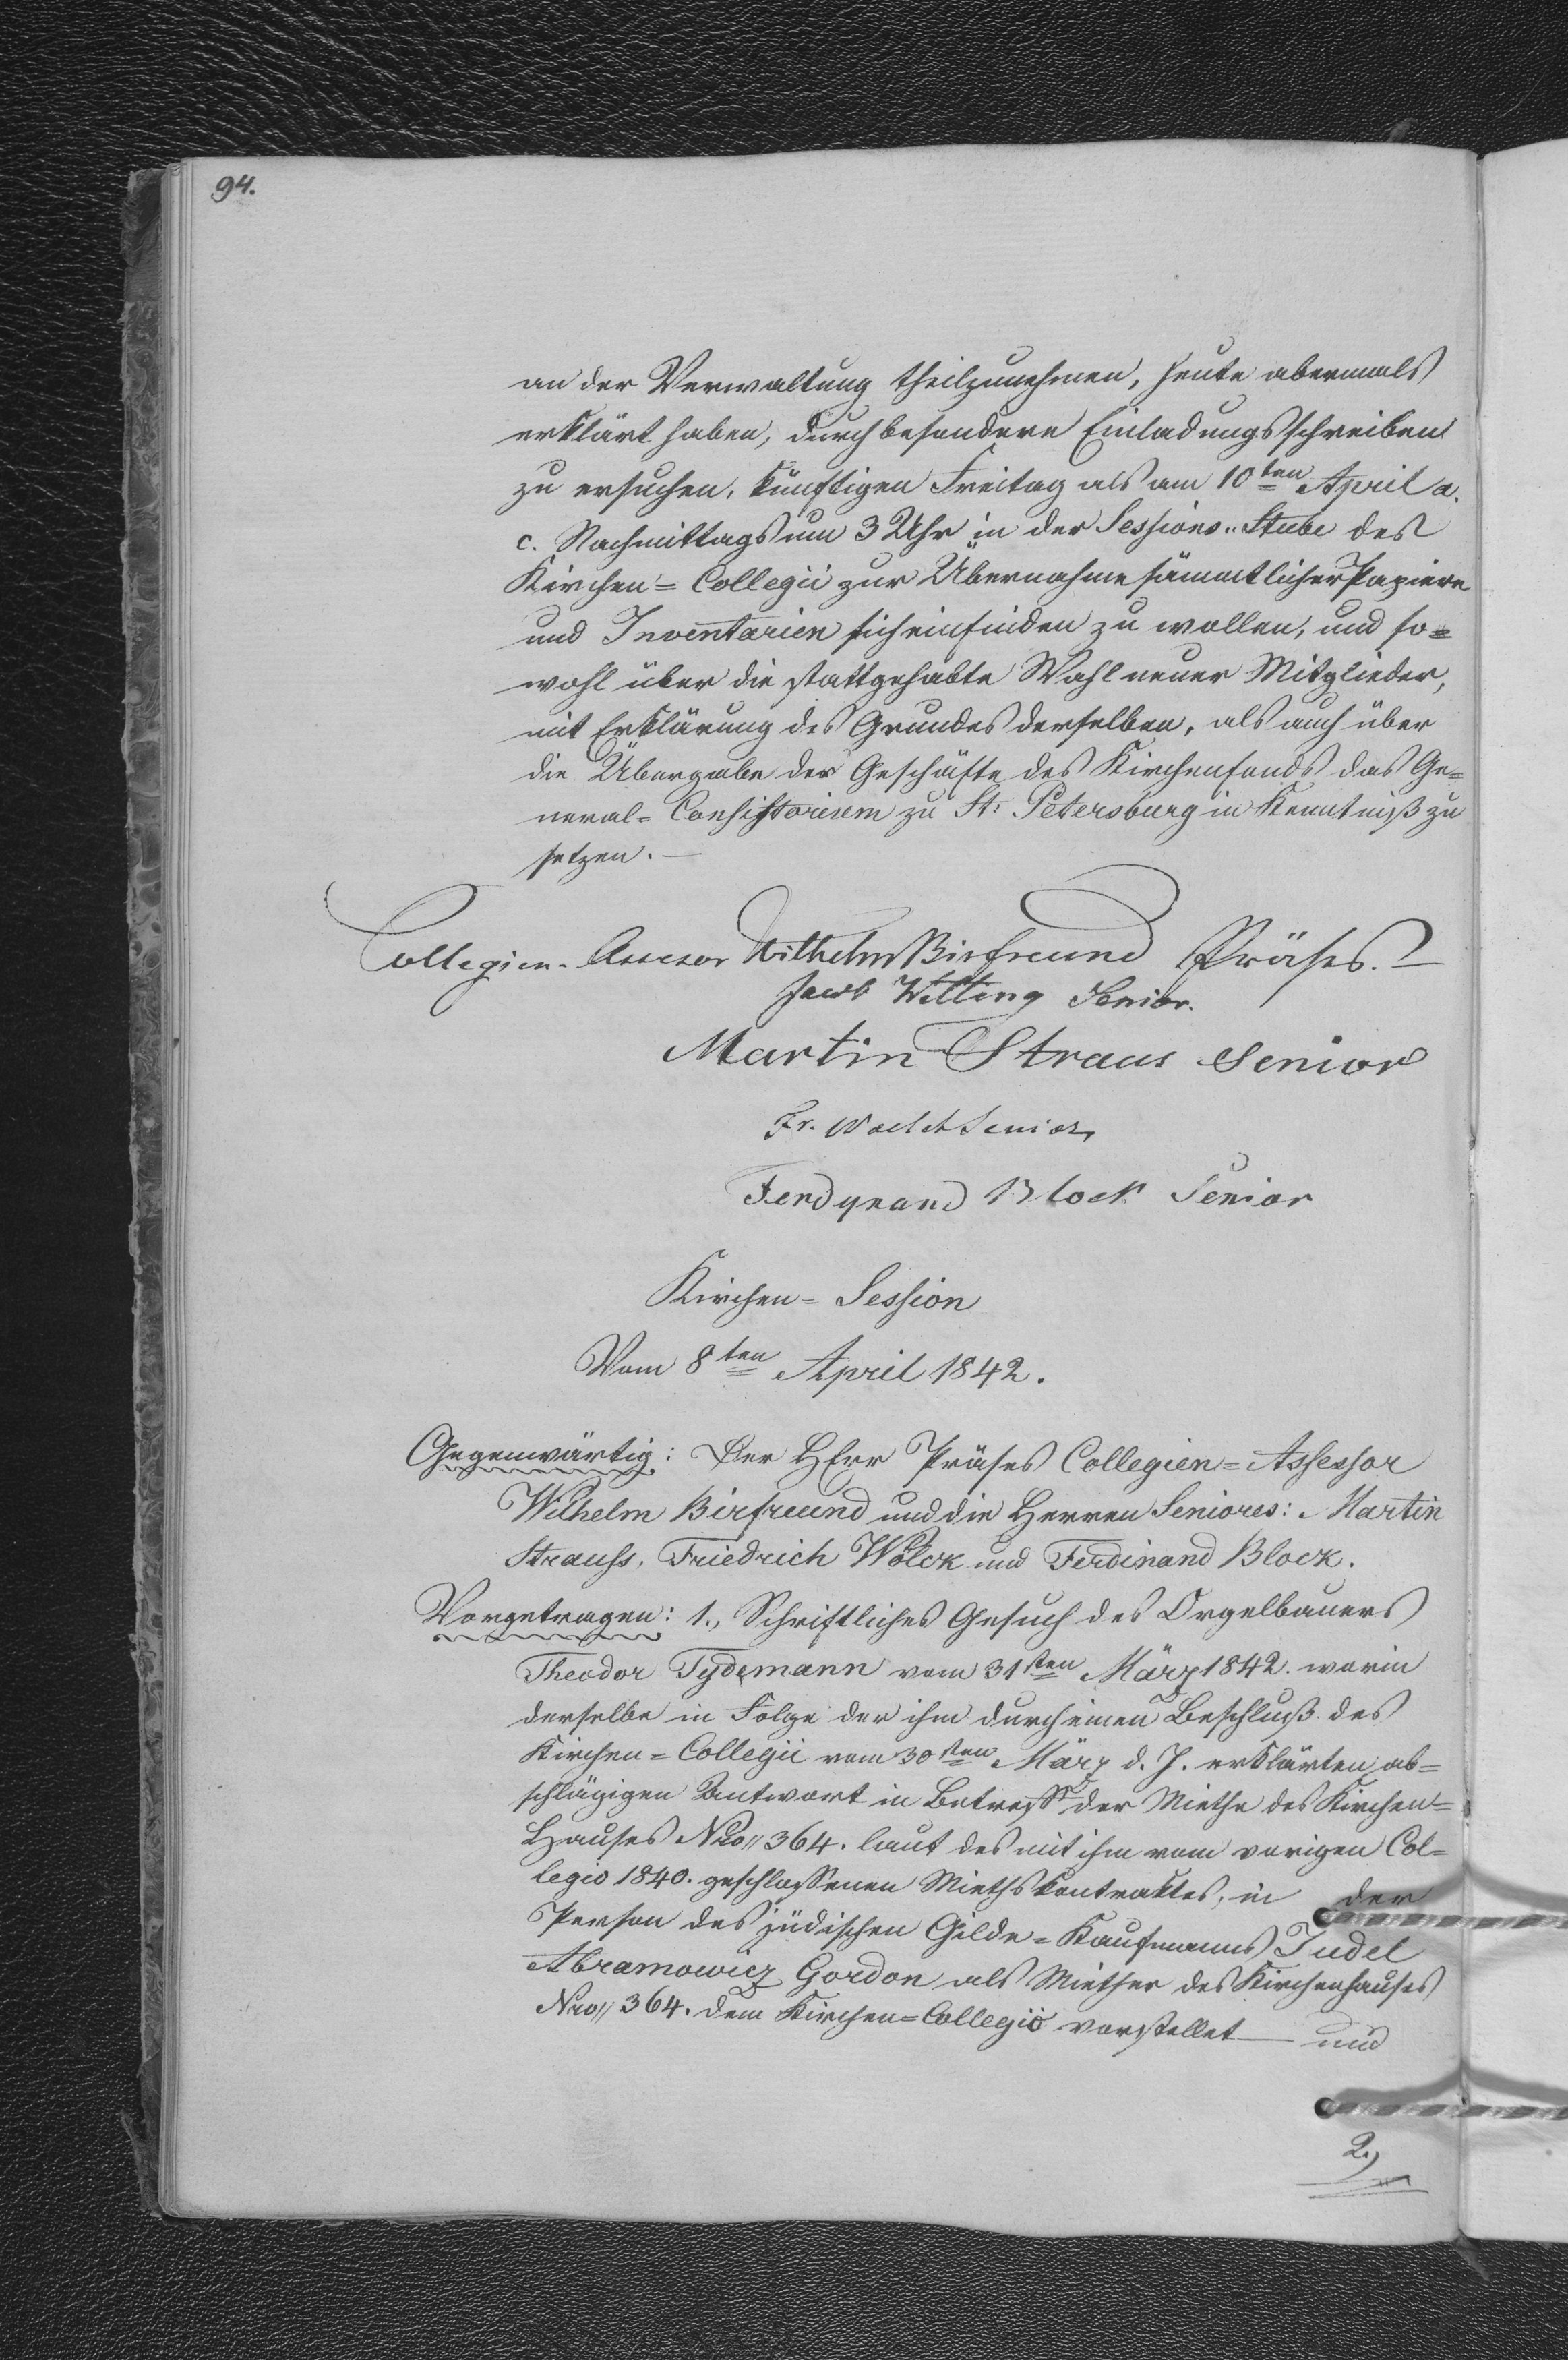 94.
an der Verwaltung theilzunehmen, heute abermals
erklärt haben, durch besondere Einladungsschreiben
zu ersuchen, künftigen Freitag als am 10ten April a.
c. Nachmittags um 3 Uhr in der Sessions-Stube des
Kirchen=Collegii zur Übernahme sämmtlicher Papiere
und Inventarien sich einfinden zu wollen, und so=
wohl über die stattgehabte Wahl neuer Mitglieder,
mit Erklärung des Grundes derselben, als auch über
die Übergabe der Geschäfte des Kirchenfonds das Ge=
neral=Consistorium zu St: Petersburg in Kenntniß zu
setzen. —
Collegien-Assesor Wilhelm Birfreund Präses. —
Jacob Witting Senior.
Martin Straus Senior
Fr. Senior
Ferdynand Block Senior
Kirchen=Session
Vom 8ten April 1842.
Gegenwärtig: Der HErr Präses Collegien=Assessor
Wilhelm Birfreund und die Herren Seniores: Martin
Strauss, Friedrich Wölck und Ferdinand Block.
Vorgetragen: 1., Schriftliches Gesuch des Orgelbauers
Theodor Tydemann vom 31sten März 1842. worin
derselbe in Folge der ihm durch einen Beschluß des
Kirchen=Collegii vom 30sten März d. J. erklärten ab=
schlägigen Antwort in Betreff der Miethe des Kirchen=
Hauses Nro// 364. laut des mit ihm vom vorigen Col=
legio 1840. geschlossenen Miethskontraktes, in der
Person des jüdischen Gilde=Kaufmanns Judel
Abramowicz Gordon als Miether des Kirchenhauses
Nro// 364. dem Kirchen=Collegio vorstellet — und
2.,